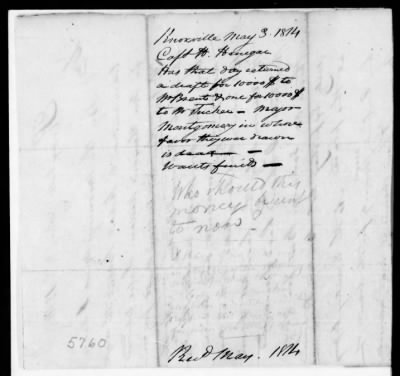 Knoxville May 3. 1814
Capt H. Henegar
Has that day returned
a draft for 10000$ to
Wm Brent & one for 10000$
to W Tucker — Major
Montgomery in whose
favor they was drawn
is dead —
Wants funds —
Who should this
money be sent
to now
5760
Recd May. 1814